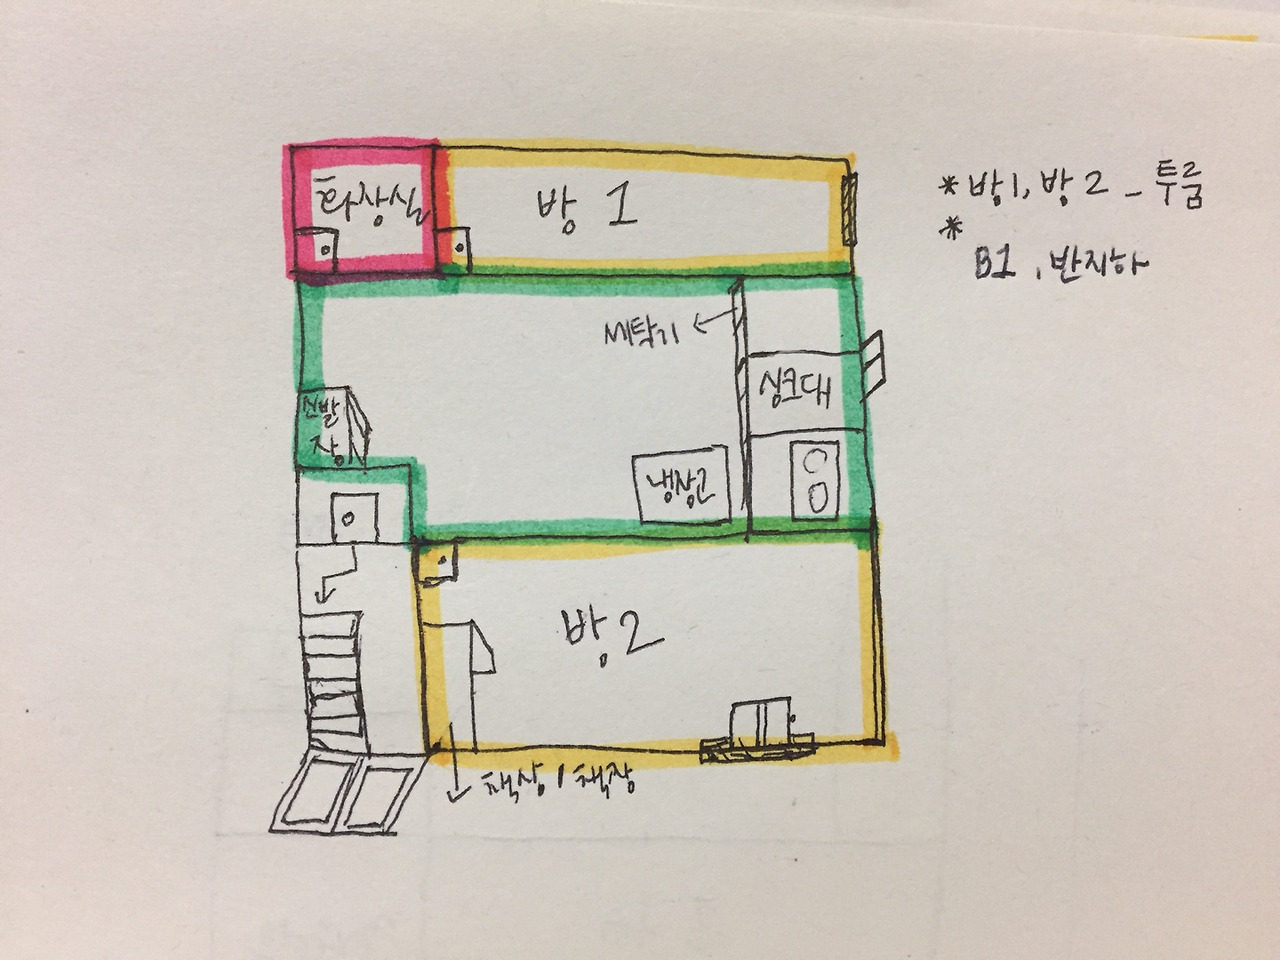 화장실
방 1
* 방1, 방 2 - 투룸
*
B1, 반지하
세탁기
싱크대
신발
장
냉장고
방 2
책상 / 책장